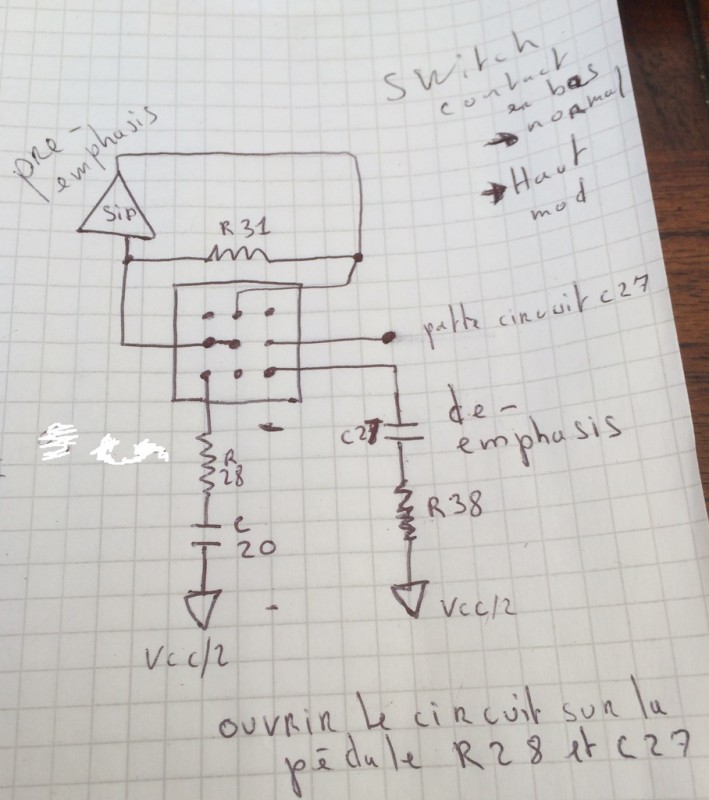 Switch
contact
en bas
→ normal
→ Haut
mod
pre-
emphasis
Sip
R31
patte circuit C27
de-
emphasis
C27
R
28
R38
C
20
Vcc/2
Vcc/2
OUVRIR le circuit sur la
pédale R28 et C27